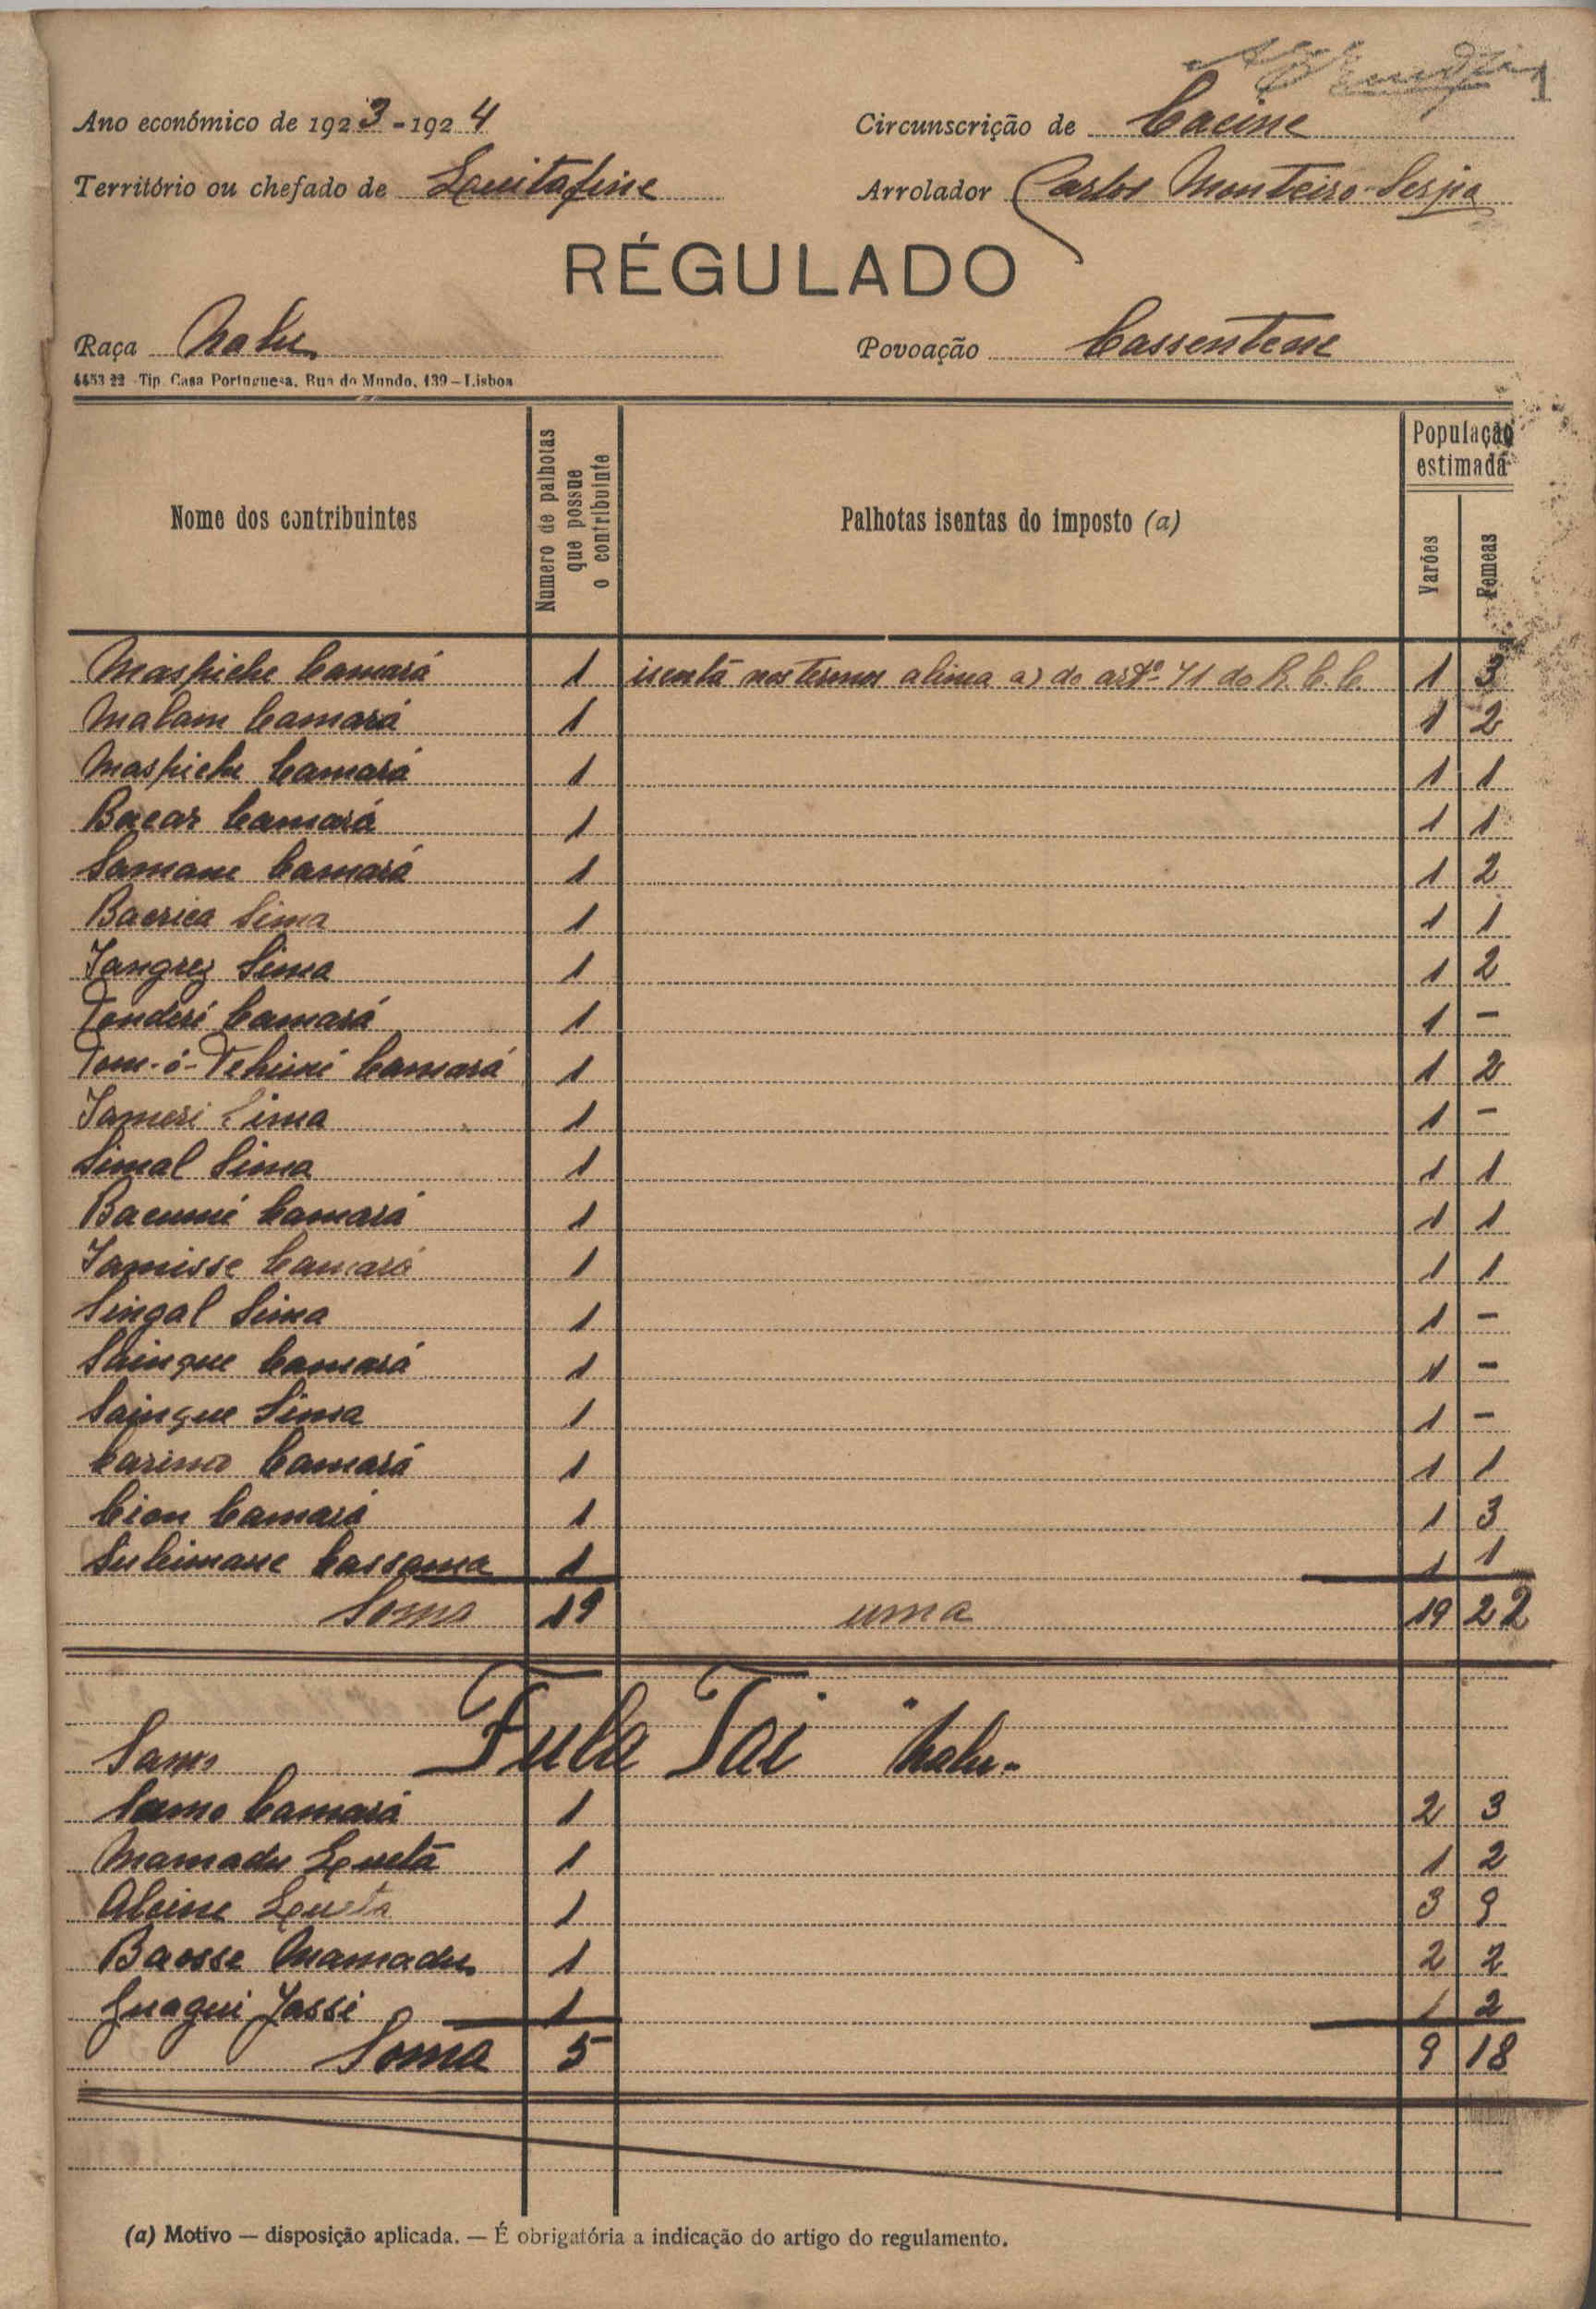 1
Ano económico de 1923-1924 Circunscrição de Cacine
Território ou chefado de Quitafine Arrolador Carlos Monteiro Serpa
RÉGULADO
Raça Nalu Povoação Cassentene
4453 22 - Tip. Casa Portuguesa, Rua do Mundo, 139 – Lisboa
Nome dos contribuintes Numero de palhotas que possue o contribuinte Palhotas isentas do imposto (a) População estimada Varões Femeas
Maspiche Camará 1 isenta nos termos alinea a) do artº 71 do R. C. C. 1 3
Malam Camará 1 1 2
Maspiche Camará 1 1 1
Bacar Camará 1 1 1
Samane Camará 1 1 2
Bacrica Sima 1 1 1
Tangrez Sima 1 1 2
Tenderi Camará 1 1 -
Tom-ó- Camará 1 1 2
Tameri Sima 1 1 -
Simal Sima 1 1 1
Camará 1 1 1
Tamisse Camará 1 1 1
Singal Sima 1 1 -
Sainque Camará 1 1 -
Sainque Sima 1 1 -
Carina Camará 1 1 1
Camará 1 1 3
Suleimane Cassama 1 1 1
Soma 19 uma 19 22
Fula Tai Nalu -
Samo
Samo Camará 1 2 3
Mamadu Quetá 1 1 2
Alcine Queta 1 3 9
Baosse Mamadu 1 2 2
Guagui Jassi 1 1 2
Soma 5 9 18
(a) Motivo — disposição aplicada. — É obrigatória a indicação do artigo do regulamento.